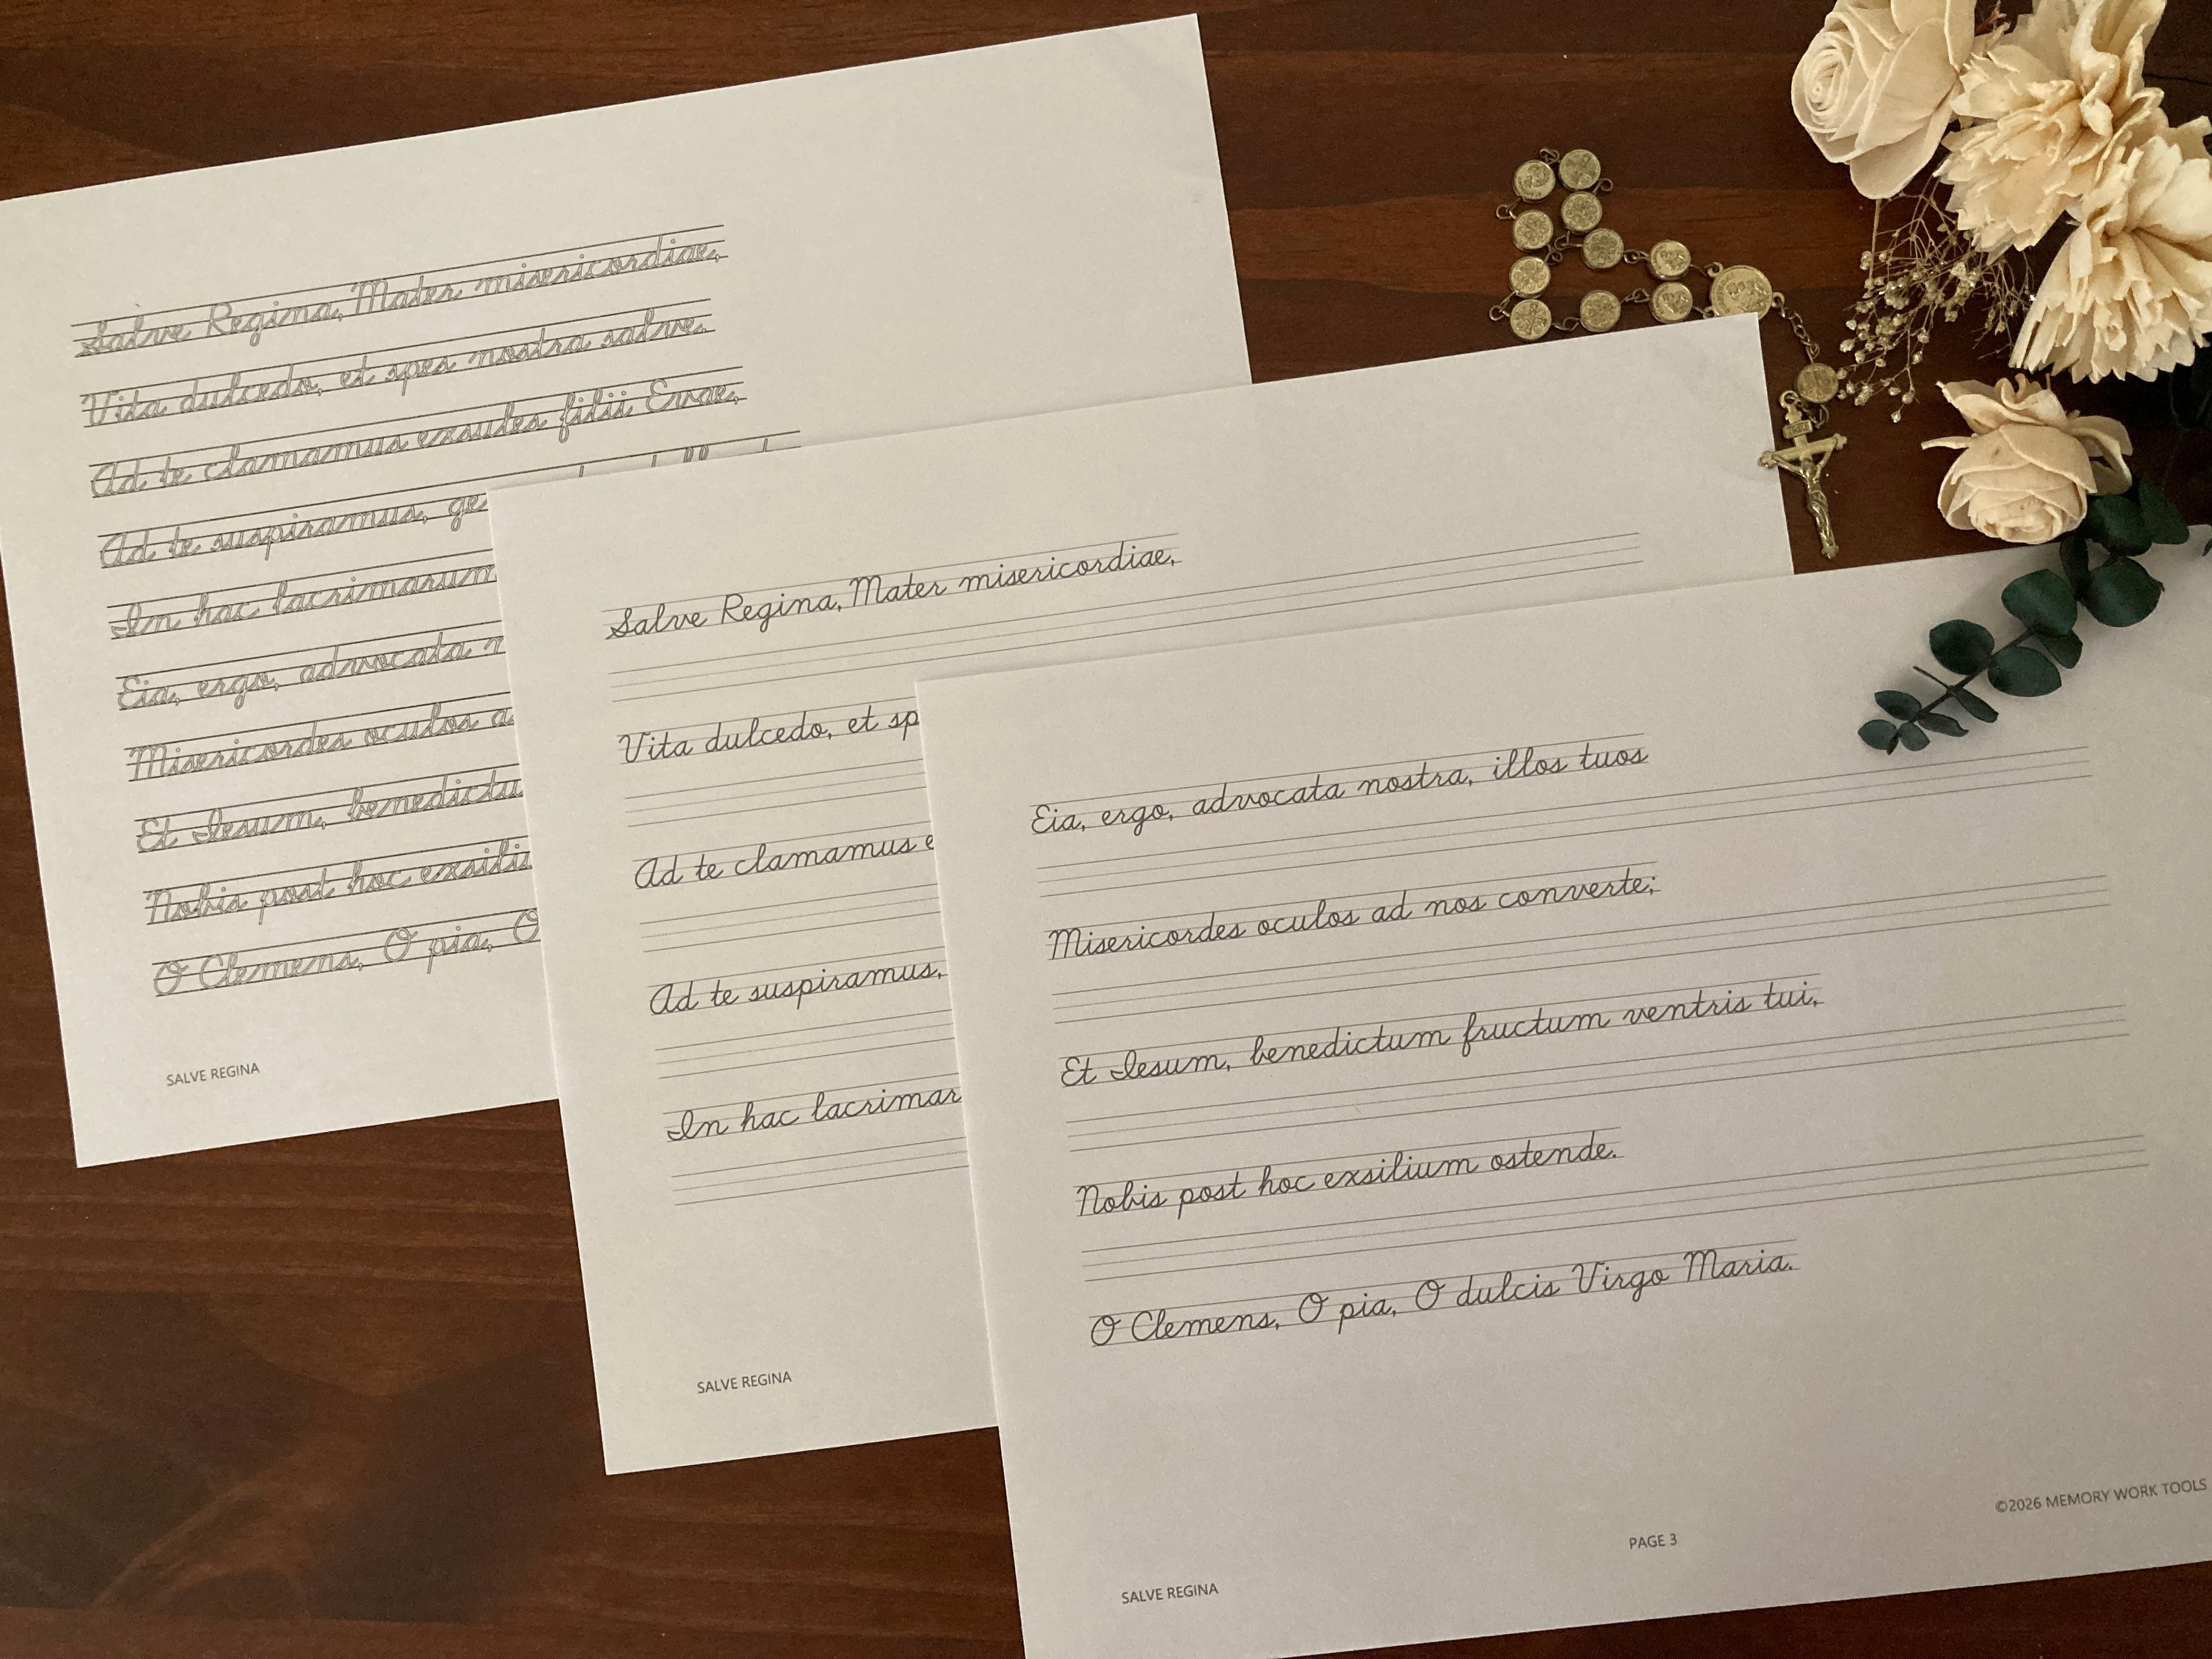 Salve Regina, Mater misericordiae,
Vita dulcedo, et spes nostra salve.
Ad te clamamus exsules filii Evae,
Ad te suspiramus,
In hac lacrimarum
Eia, ergo, advocata
Misericordes oculos
Et Iesum,
Nobis post hoc
O Clemens, O pia, O
SALVE REGINA
Salve Regina, Mater misericordiae,
Vita dulcedo, et
Ad te clamamus
Ad te suspiramus,
In hac
SALVE REGINA
Eia, ergo, advocata nostra, illos tuos
Misericordes oculos ad nos converte;
Et Iesum, benedictum fructum ventris tui,
Nobis post hoc exsilium ostende.
O Clemens, O pia, O dulcis Virgo Maria.
SALVE REGINA
PAGE 3
©2026 MEMORY WORK TOOLS